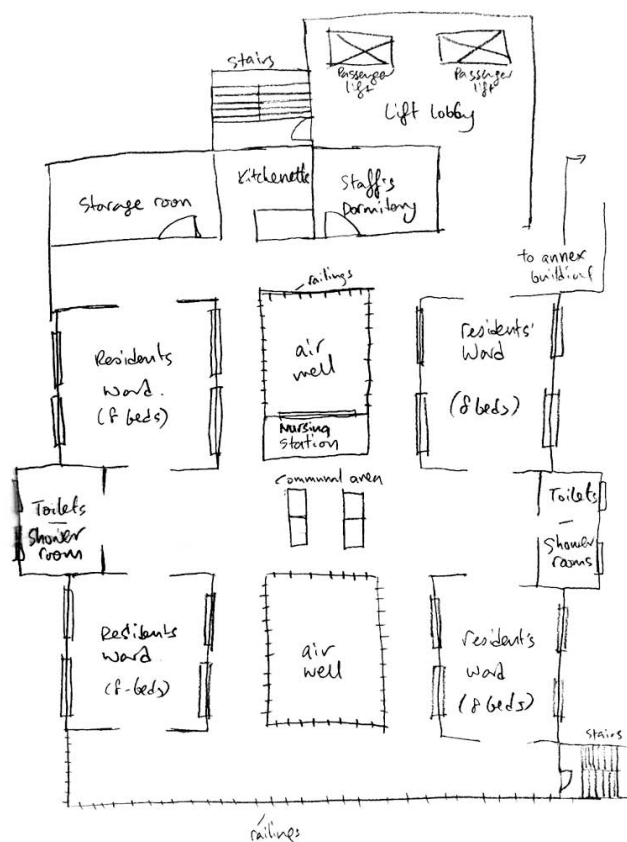 Stairs
Passenger
lift
Passenger
lift
Lift lobby
Storage room
Kitchenette
Staff's
Dormitory
to annex
building
railings
Residents
Ward.
(8 beds)
air
well
residents'
Ward
(8 beds)
Nursing
Station
communal area
Toilets
–
Shower
room
Toilets
–
Shower
rooms
Residents
Ward
(8-beds)
air
well
resident's
Ward
(8 beds)
Stairs
railings